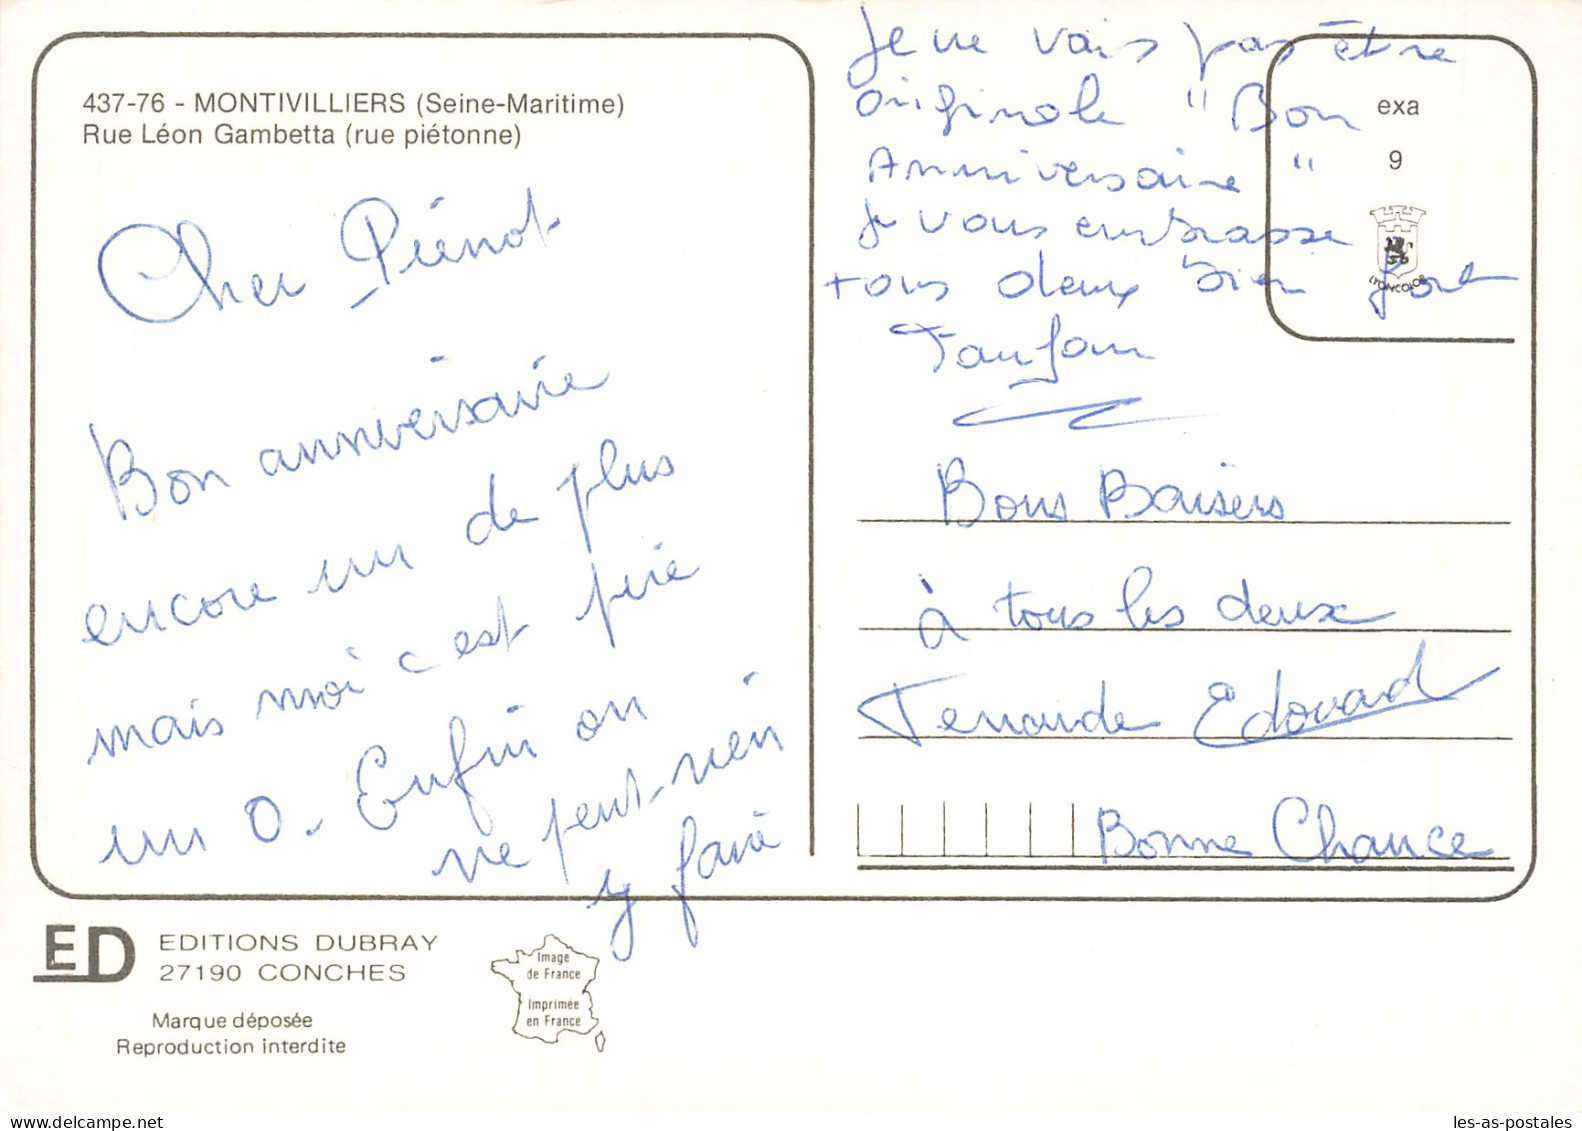 437-76 - MONTIVILLIERS (Seine-Maritime)
Rue Léon Gambetta (rue piétonne)
Cher Piérrot
Bon anniversaire
encore un de plus
mais moi c'est pire
un 0. Enfin on
ne peut-rien
y faire
Je ne vais pas être
originale "Bon
Anniversaire"
Je vous embrasse
tous deux bien fort
Bons Baisers
à tous les deux
Fernande Edouard
Bonne Chance
exa
9
LYONCOLOR
ED
EDITIONS DUBRAY
27190 CONCHES
Marque déposée
Reproduction interdite
Image
de France
Imprimée
en France
les-as-postales